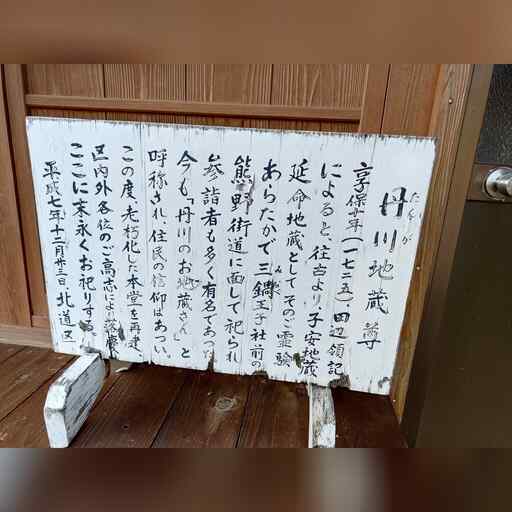 丹川地蔵尊
たんがわ
享保十年(一七二五)、田辺領記
によると、往古より、子安地蔵
延命地蔵として、そのご霊験
あらたかで三鍋王子社前の
熊野街道に面して祀られ
参詣者も多く有名であった
今も「丹川のお地蔵さん」と
呼称され、住民の信仰はあつい。
この度老朽化した本堂を再建
区内外各位のご高志により落慶
ここに末永くお祀りする。
平成七年十二月廿三日、北道区